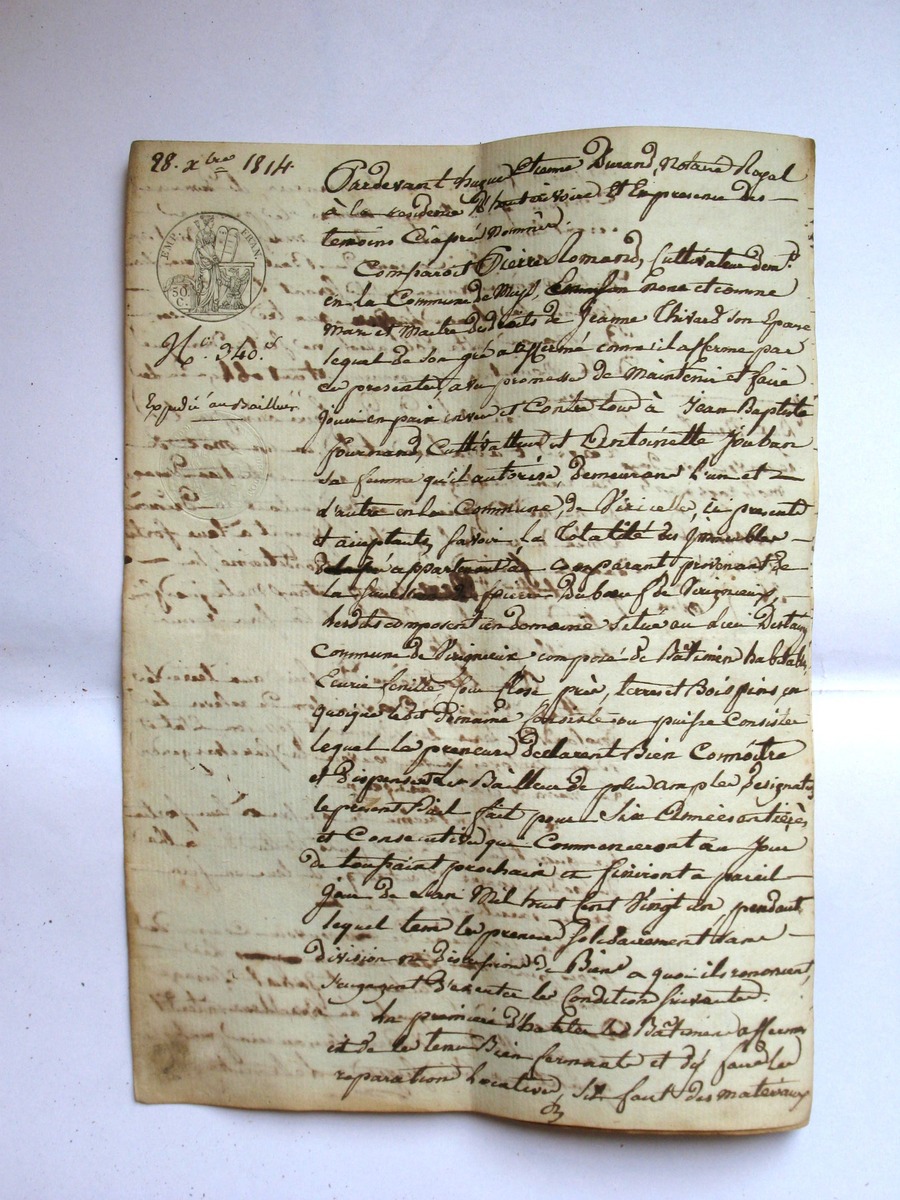 28. xbre 1814
EMP. FRAN.
50 C.
Expédié au Bailleur
Pardevant hugue Etienne Durand, Notaire Royal
à la residence de et En presence des
temoins Cy après Nommés.
Comparoit Pierre Romand, Cultivateur dem.t
en la Commune de nom et comme
Mari et Maitre des droits de Jeanne Thivard son Epouse
lequel de son gré a affermé comme il afferme par
ces presentes, avec promesse de Maintenir et faire
Jouir en paix envers et Contre tous à Jean Baptiste
Cultivateur et Antoinette Jouban
sa femme qu'il autorise demeurans l'un et
d'autre en la Commune, de Viricelle, icy present
et acceptants, savoir la Totalité des Immeubles
appartenant à comparant provenant de
la de Virigneux,
composent un domaine situé au Lieu
Commune de Virigneux composé de Bâtimens habitable,
Ecurie fenille prés, terres et Bois pins en
quoique ledit domaine consiste ou puisse Consister
lequel les preneurs declarent Bien Connoitre
et dispensent le Bailleur de plus ample designation,
le present Bail fait pour Six Années entières
et Consecutives que Commenceront au Jour
de toussaint prochain et finiront a pareil
Jour de L'an Mil huit cent Vingt un, pendant
lequel tems les preneurs solidairement sans
division ni discussion de Biens a quoi ils renoncent,
s'engagent d'executer les Condition suivantes.
La premiere d'habiter les Bâtimens affermés
et de les tenir Bien fermants et d'y faire les
reparations locatives, S'il faut des materiaux